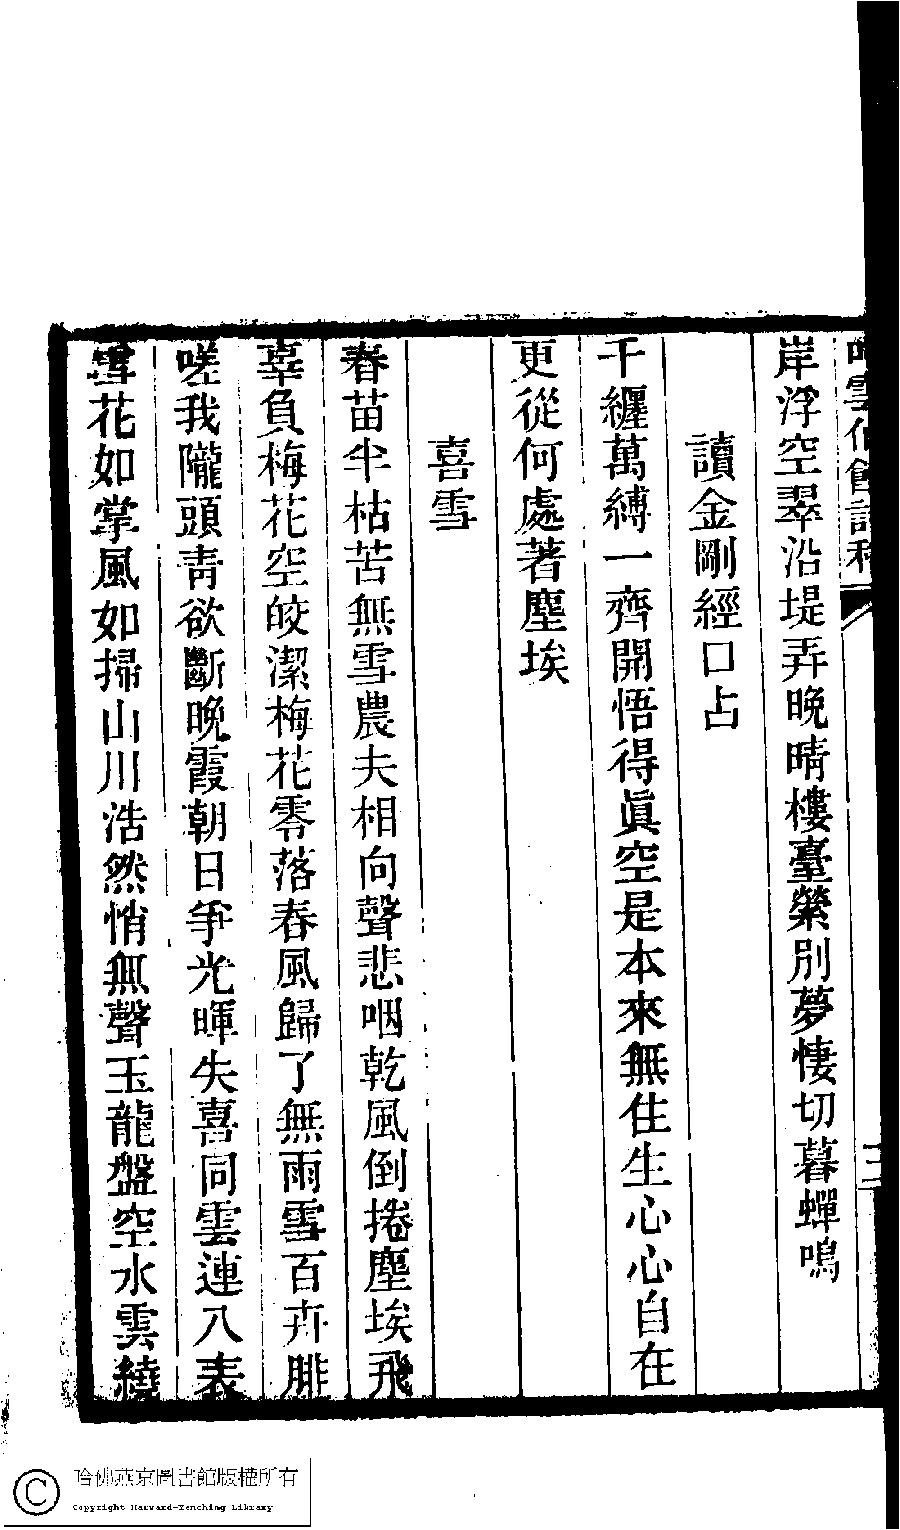 岸浮空翠沿堤弄晚晴樓臺縈別夢悽切暮蟬鳴
讀金剛經口占
千纏萬縛一齊開悟得眞空是本來無住生心心自在
更從何處著塵埃
喜雪
春苗半枯苦無雪農夫相向聲悲咽乾風倒捲塵埃飛
辜負梅花空皎潔梅花零落春風歸了無雨雪百卉腓
嗟我隴頭靑欲斷晚霞朝日爭光暉失喜同雲連八表
雪花如掌風如掃山川浩然悄無聲玉龍盤空水雲繞
哈佛燕京圖書館版權所有
Copyright Harvard-Yenching Library